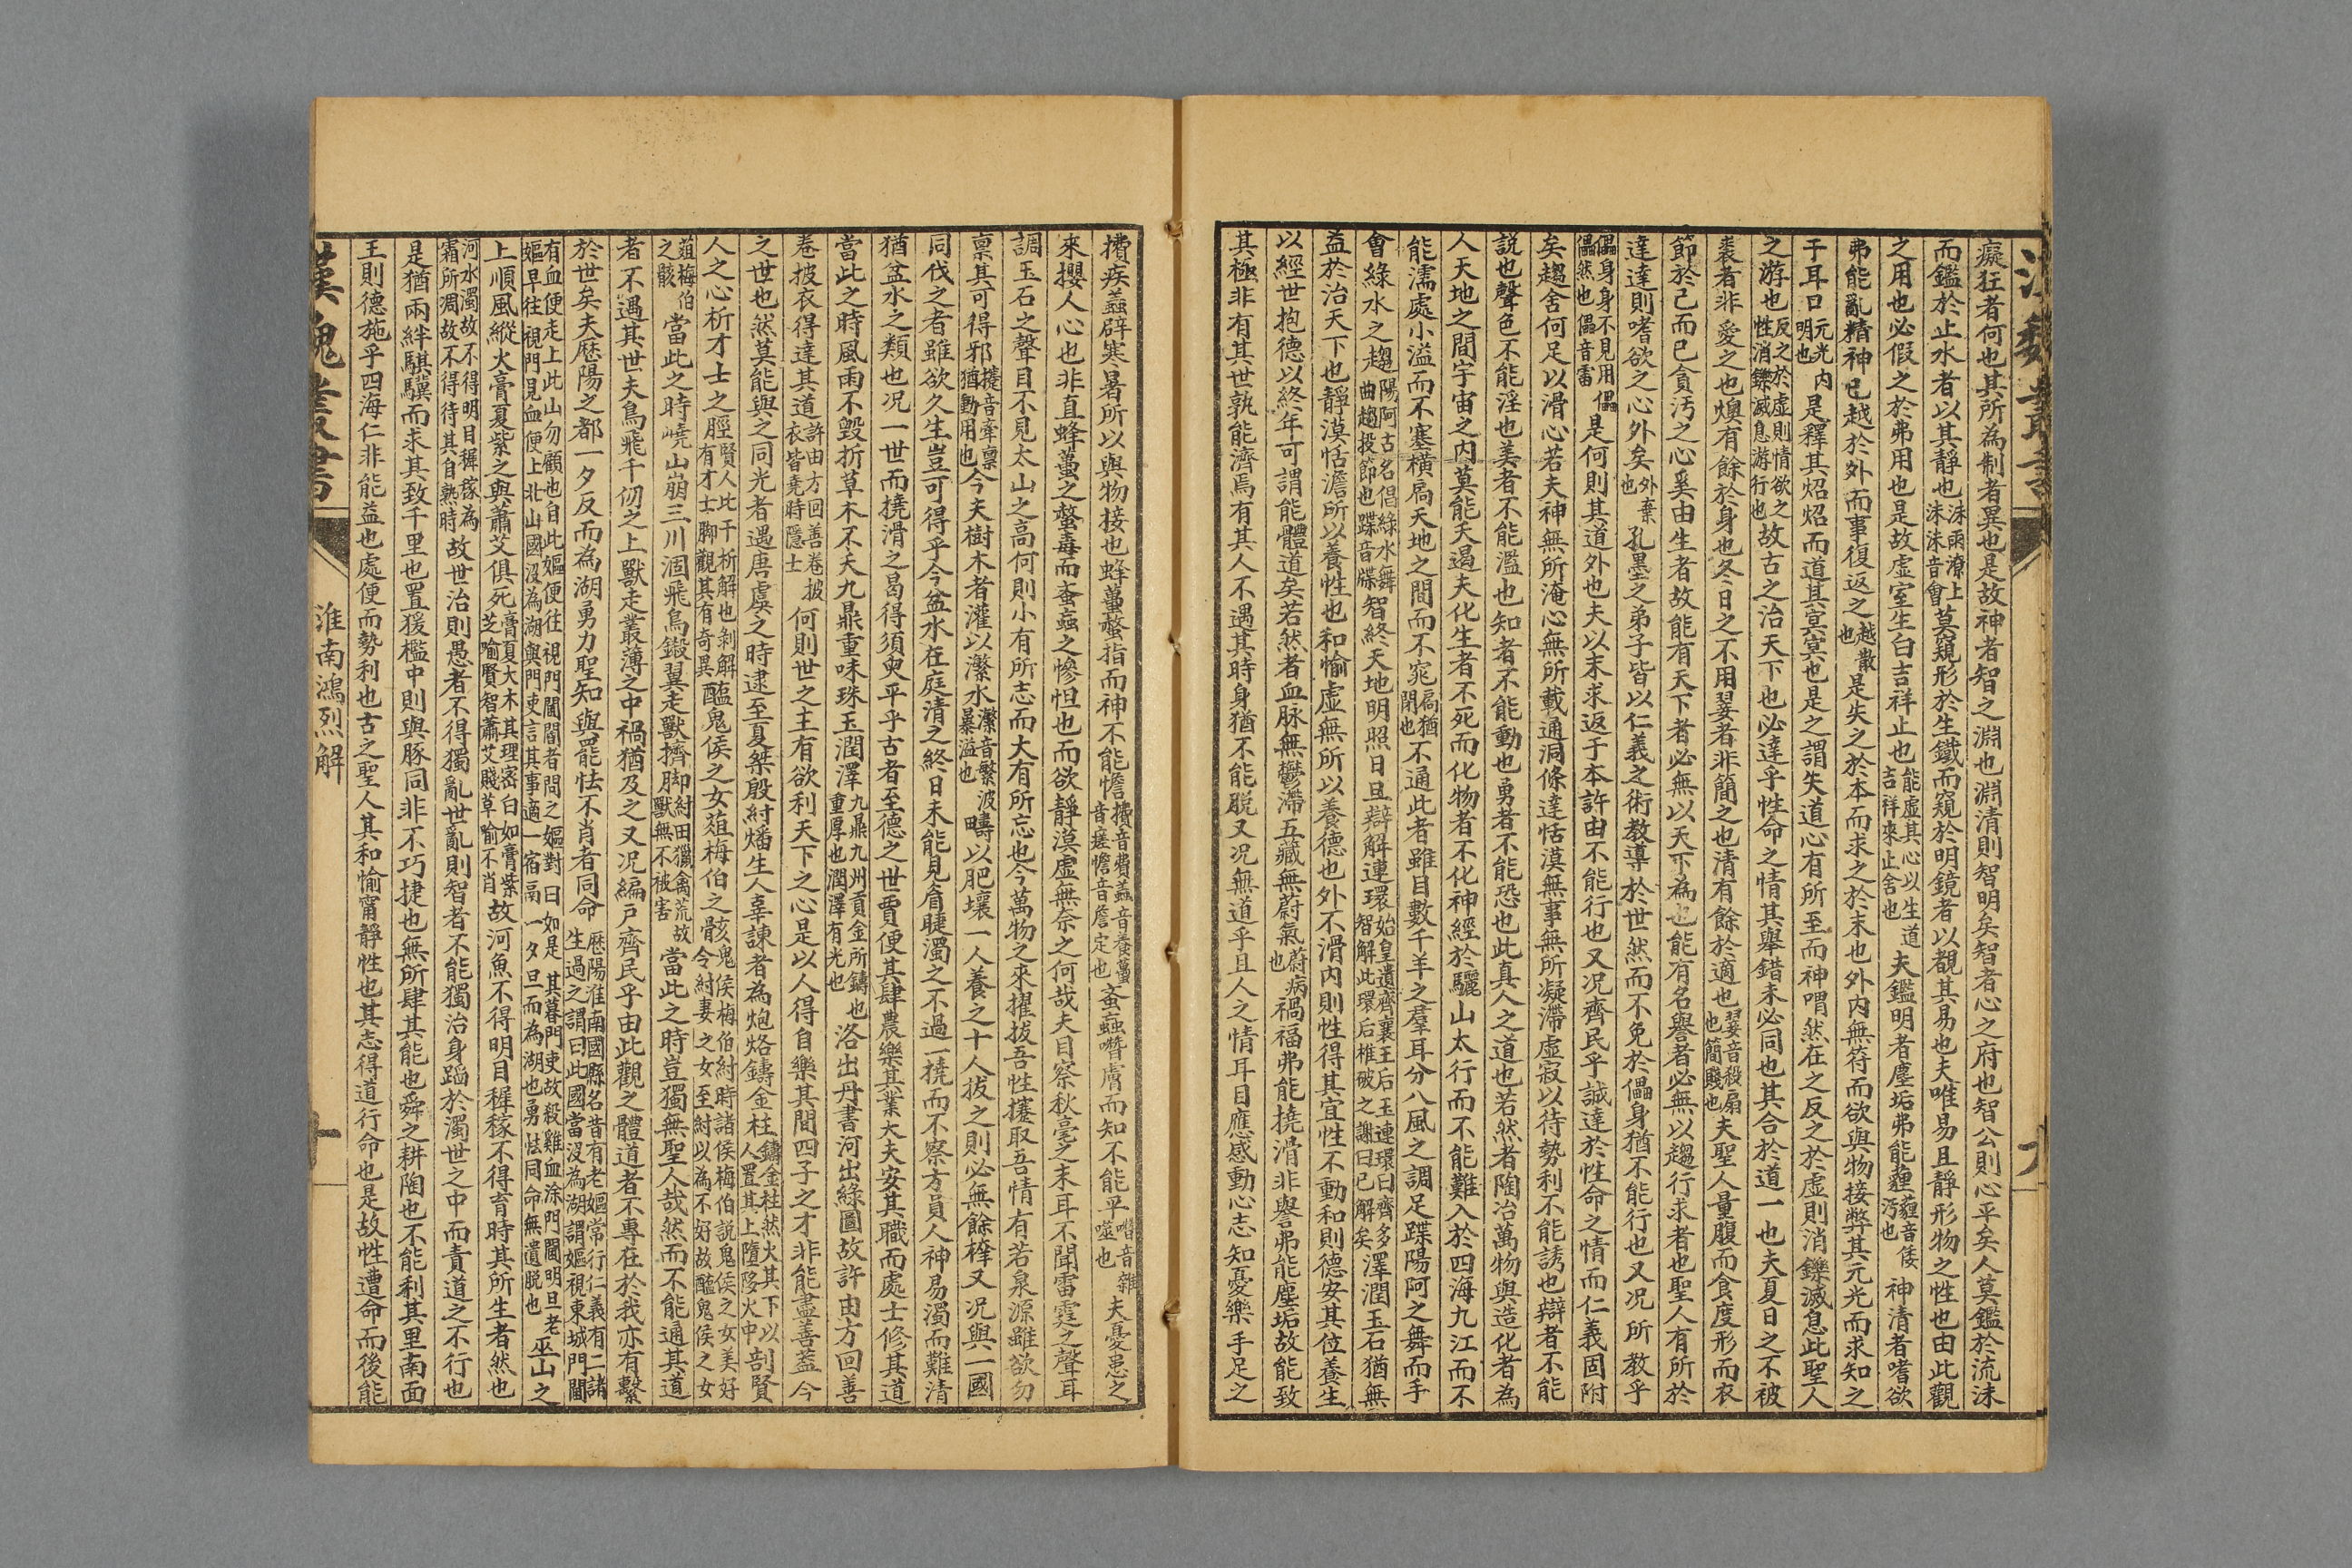 癡狂者何也其所為制者異也是故神者智之淵也淵清則智明矣智者心之府也智公則心平矣人莫鑑於流沫
而鑑於止水者以其靜也沫雨潦上沫沫音會莫窺形於生鐵而窺於明鏡者以覩其易也夫唯易且靜形物之性也由此觀
之用也必假之於弗用也是故虛室生白吉祥止也能虛其心以生道吉祥來止舍也夫鑑明者塵垢弗能薶薶音倭汚也神清者嗜欲
弗能亂精神已越於外而事復返之越散也是失之於本而求之於末也外內無符而欲與物接弊其元光而求知之
于耳口元光內明也是釋其炤炤而道其冥冥也是之謂失道心有所至而神喟然在之反之於虛則消鑠滅息此聖人
之游也反之於虛則情欲之性消鑠滅息游行也故古之治天下也必達乎性命之情其舉錯未必同也其合於道一也夫夏日之不被
裘者非愛之也燠有餘於身也冬日之不用翣者非簡之也清有餘於適也翣音殺扇也簡賤也夫聖人量腹而食度形而衣
節於己而已貪汚之心奚由生者故能有天下者必無以天下為也能有名譽者必無以趨行求者也聖人有所於
達達則嗜欲之心外矣外棄也孔墨之弟子皆以仁義之術教導於世然而不免於儡身猶不能行也又况所教乎
儡身身不見用儡儡然也儡音雷是何則其道外也夫以末求返于本許由不能行也又况齊民乎誠達於性命之情而仁義固附
矣趨舍何足以滑心若夫神無所淹心無所載通洞條達恬漠無事無所凝滯虛寂以待勢利不能誘也辯者不能
説也聲色不能淫也美者不能濫也知者不能動也勇者不能恐也此真人之道也若然者陶冶萬物與造化者為
人天地之間宇宙之內莫能夭遏夫化生者不死而化物者不化神經於驪山太行而不能難入於四海九江而不
能濡處小溢而不塞横扃天地之間而不窕扃猶閉也不通此者雖目數千羊之羣耳分八風之調足蹀陽阿之舞而手
會綠水之趨陽阿古名倡綠水舞曲趨投節也蹀音牒智終天地明照日旦辯解連環始皇遺齊襄王后玉連環曰齊多智解此環后椎破之謝曰已解矣澤潤玉石猶無
益於治天下也靜漠恬澹所以養性也和愉虛無所以養德也外不滑內則性得其宜性不動和則德安其位養生
以經世抱德以終年可謂能體道矣若然者血脉無鬱滯五藏無蔚氣蔚病也禍福弗能撓滑非譽弗能塵垢故能致
其極非有其世孰能濟焉有其人不遇其時身猶不能脫又况無道乎且人之情耳目應感動心志知憂樂手足之
㩌疾蠚辟寒暑所以與物接也蜂蠆螫指而神不能憺㩌音費蠚音養蠆音瘥憺音詹定也蚉蝱噆膚而知不能平噆音雜噬也夫憂患之
來攖人心也非直蜂蠆之螫毒而蚉蝱之慘怛也而欲靜漠虛無奈之何哉夫目察秋毫之末耳不聞雷霆之聲耳
調玉石之聲目不見太山之高何則小有所志而大有所忘也今萬物之來擢拔吾性攓取吾情有若泉源雖欲勿
禀其可得邪攓音牽禀猶動用也今夫樹木者灌以瀿水瀿音繁波暴溢也疇以肥壤一人養之十人拔之則必無餘㰏又况與一國
同伐之者雖欲久生豈可得乎今盆水在庭清之終日未能見眉睫濁之不過一撓而不察方員人神易濁而難清
猶盆水之類也况一世而撓滑之曷得須臾平乎古者至德之世賈便其肆農樂其業大夫安其職而處士修其道
當此之時風雨不毀折草木不夭九鼎重味珠玉潤澤九鼎九州貢金所鑄也重厚也潤澤有光也洛出丹書河出綠圖故許由方回善
卷披衣得達其道許由方回善卷披衣皆堯時隱士何則世之主有欲利天下之心是以人得自樂其間四子之才非能盡善蓋今
之世也然莫能與之同光者遇唐虞之時逮至夏桀殷紂燔生人辜諫者為炮烙鑄金柱鑄金柱然火其下以人置其上墮陊火中剖賢
人之心析才士之脛賢人比干析解也剝解有才士脚觀其有奇異醢鬼侯之女葅梅伯之骸鬼侯梅伯紂時諸侯梅伯説鬼侯之女美好令紂妻之女至紂以為不好故醢鬼侯之女
葅梅伯之骸當此之時嶢山崩三川涸飛鳥鎩翼走獸擠脚紂田獵禽荒故獸無不被害當此之時豈獨無聖人哉然而不能通其道
者不遇其世夫鳥飛千仞之上獸走叢薄之中禍猶及之又况編户齊民乎由此觀之體道者不專在於我亦有繫
於世矣夫歷陽之都一夕反而為湖勇力聖知與罷怯不肖者同命歷陽淮南國縣名昔有老嫗常行仁義有二諸生過之謂曰此國當沒為湖謂嫗視東城門閫
有血便走上此山勿顧也自此嫗便往視門閫閽者問之嫗對曰如是其暮門吏故殺雞血涂門閫明旦老嫗早往視門見血便上北山國沒為湖與門吏言其事適一宿鬲一夕旦而為湖也勇怯同命無遺脱也巫山之
上順風縱火膏夏紫之與蕭艾俱死膏夏大木其理密白如膏紫芝喻賢智蕭艾賤草喻不肖故河魚不得明目穉稼不得育時其所生者然也
河水濁故不得明目穉稼為霜所凋故不得待其自熟時故世治則愚者不得獨亂世亂則智者不能獨治身蹈於濁世之中而責道之不行也
是猶兩絆騏驥而求其致千里也置猨檻中則與豚同非不巧捷也無所肆其能也舜之耕陶也不能利其里南面
王則德施乎四海仁非能益也處便而勢利也古之聖人其和愉甯靜性也其志得道行命也是故性遭命而後能
漢魏叢書
淮南鴻烈解